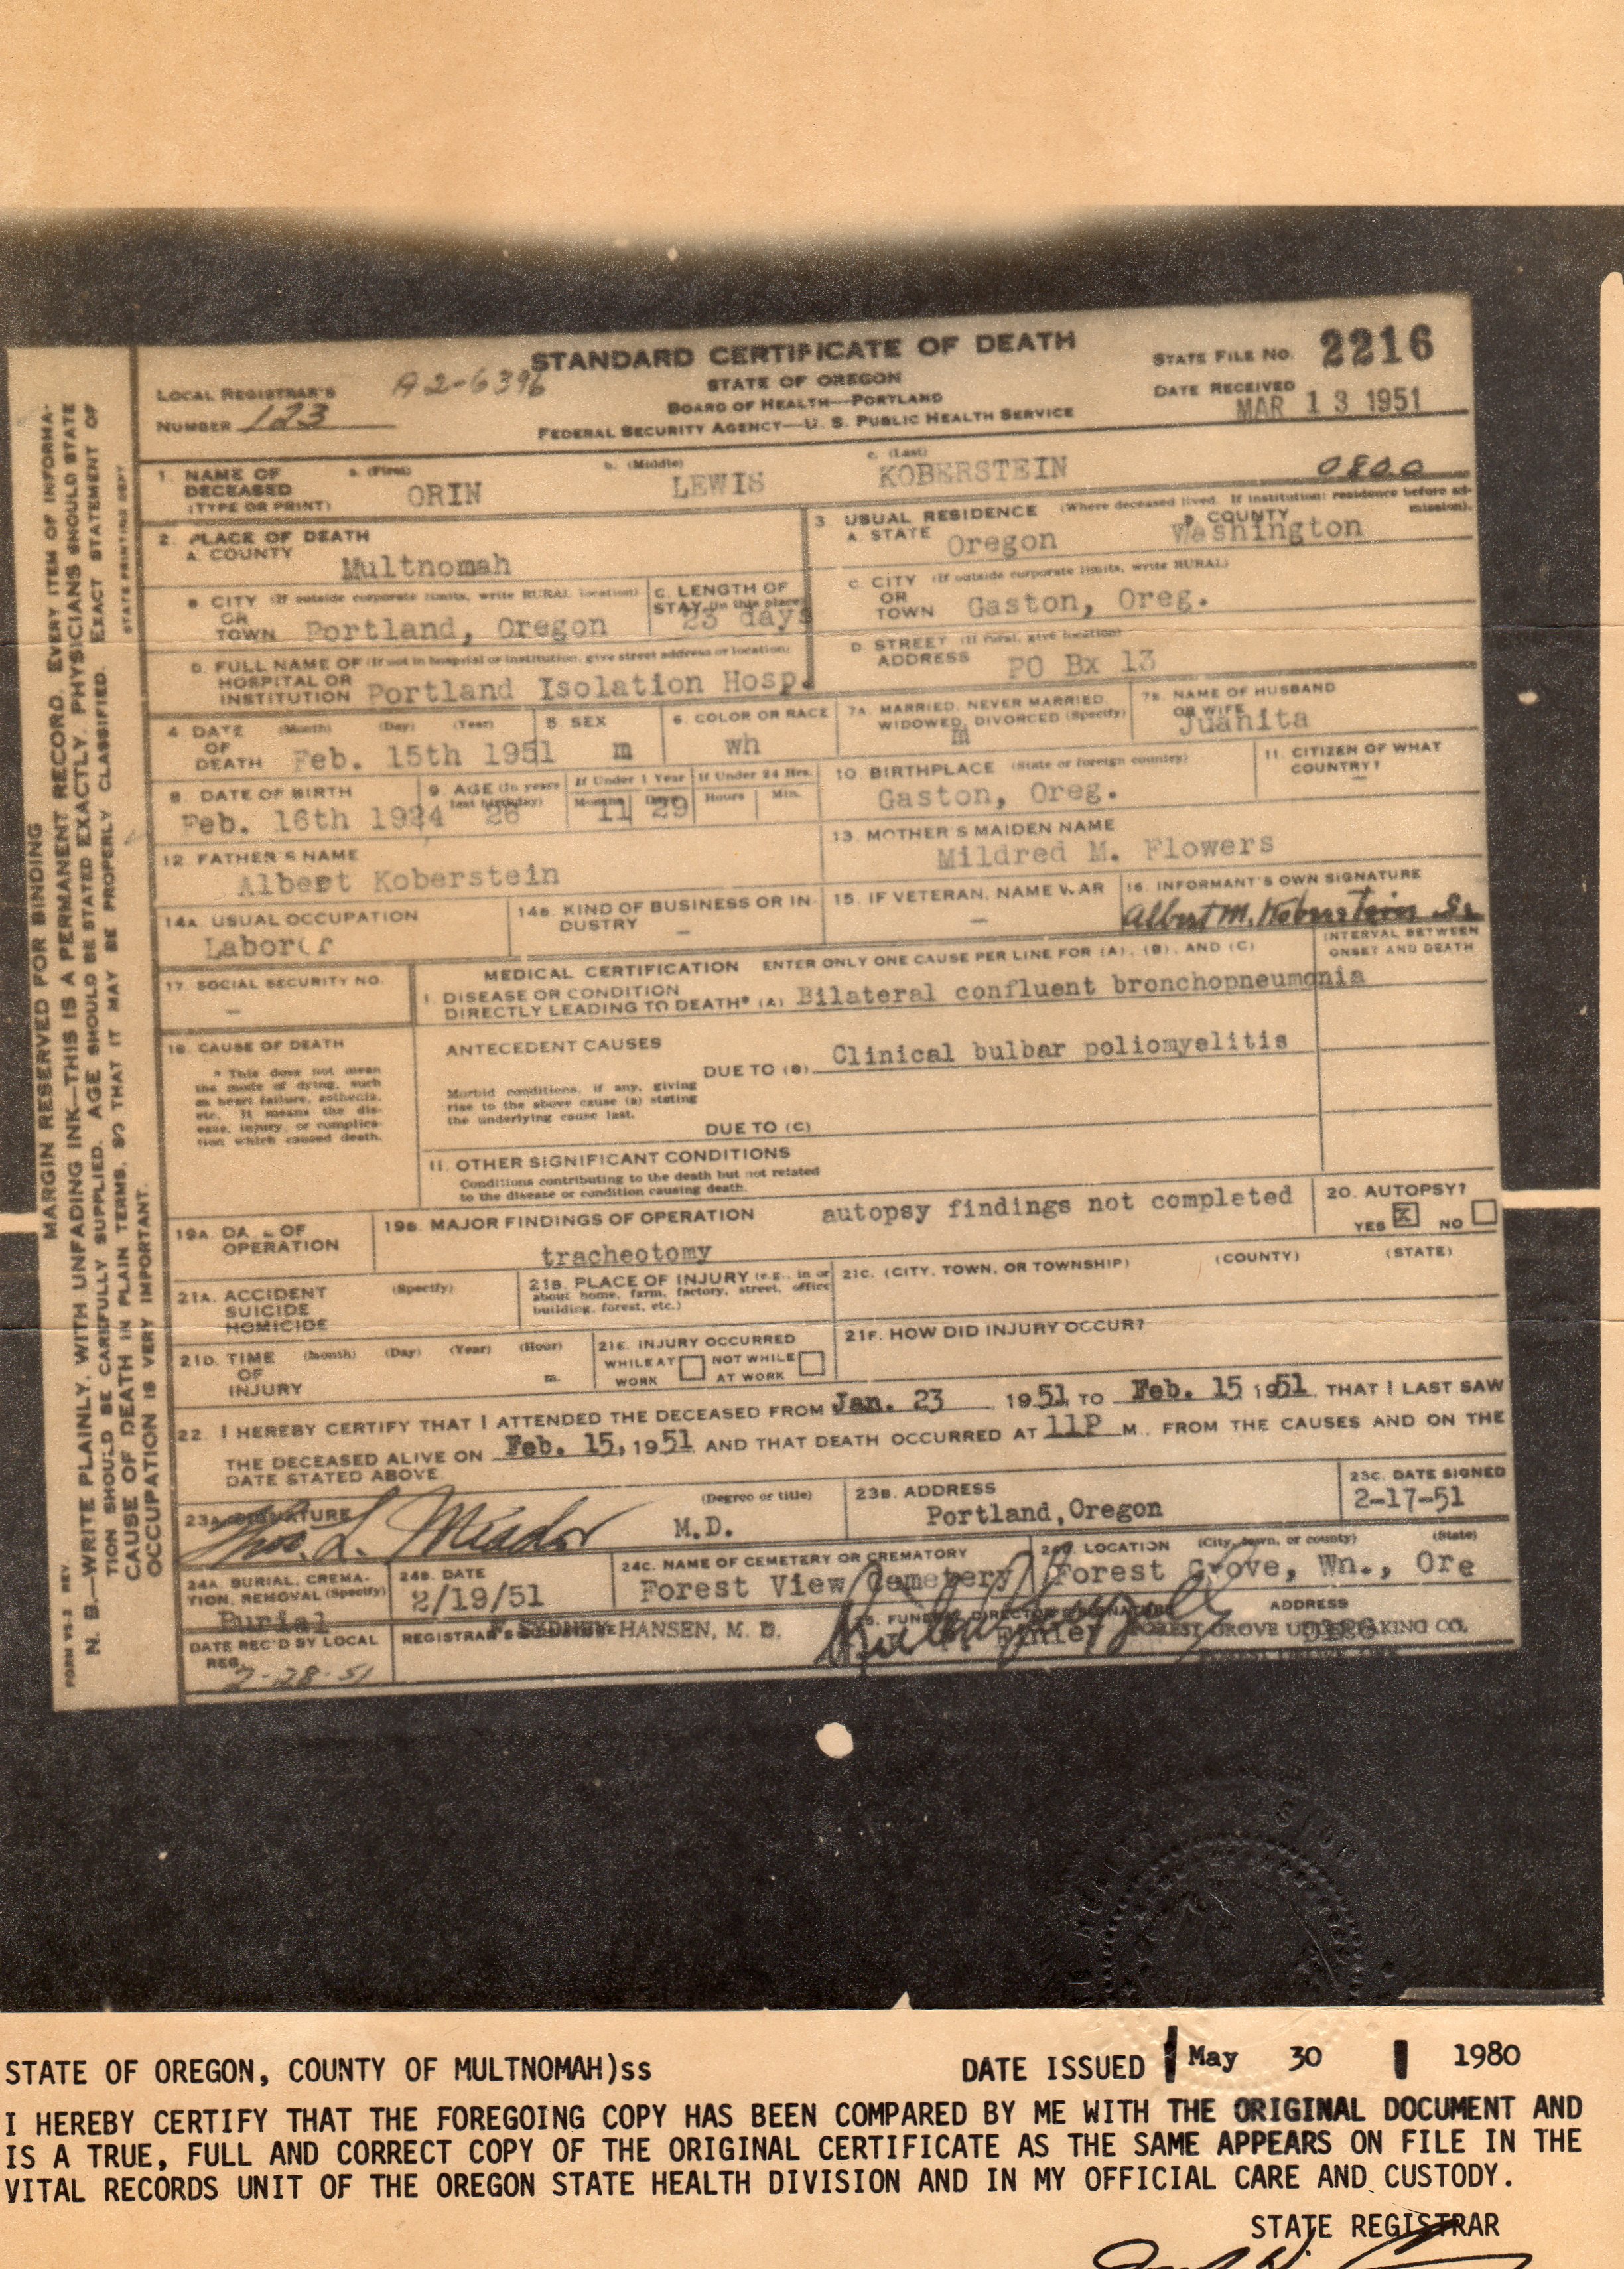 STANDARD CERTIFICATE OF DEATH
STATE OF OREGON
BOARD OF HEALTH—PORTLAND
FEDERAL SECURITY AGENCY—U. S. PUBLIC HEALTH SERVICE
LOCAL REGISTRAR'S
NUMBER 123
A2-6396
STATE FILE NO. 2216
DATE RECEIVED
MAR 13 1951
0800
1. NAME OF DECEASED (TYPE OR PRINT) a. (First) ORIN b. (Middle) LEWIS c. (Last) KOBERSTEIN
2. PLACE OF DEATH
A. COUNTY Multnomah
B. CITY (If outside corporate limits, write RURAL location) OR TOWN Portland, Oregon
C. LENGTH OF STAY (in this place) 23 days
D. FULL NAME OF (If not in hospital or institution, give street address or location) HOSPITAL OR INSTITUTION Portland Isolation Hosp.
3. USUAL RESIDENCE (Where deceased lived. If institution: residence before admission).
A. STATE Oregon
B. COUNTY Washington
C. CITY (If outside corporate limits, write RURAL) OR TOWN Gaston, Oreg.
D. STREET (If rural, give location) ADDRESS PO Bx 13
4. DATE OF DEATH (Month) (Day) (Year) Feb. 15th 1951
5 SEX m
6. COLOR OR RACE wh
7A. MARRIED, NEVER MARRIED, WIDOWED, DIVORCED (Specify) m
7B. NAME OF HUSBAND OR WIFE Juanita
8. DATE OF BIRTH Feb. 16th 1924
9. AGE (In years last birthday) 26 If Under 1 Year Months 11 Days 29 If Under 24 Hrs. Hours Min.
10. BIRTHPLACE (State or foreign country) Gaston, Oreg.
11. CITIZEN OF WHAT COUNTRY? —
12. FATHER'S NAME Albert Koberstein
13. MOTHER'S MAIDEN NAME Mildred M. Flowers
14A. USUAL OCCUPATION Laborer
14B. KIND OF BUSINESS OR INDUSTRY —
15. IF VETERAN, NAME WAR —
16. INFORMANT'S OWN SIGNATURE Albert M. Koberstein Sr.
17. SOCIAL SECURITY NO. —
MEDICAL CERTIFICATION ENTER ONLY ONE CAUSE PER LINE FOR (A), (B), AND (C)
INTERVAL BETWEEN ONSET AND DEATH
18. CAUSE OF DEATH
* This does not mean the mode of dying, such as heart failure, asthenia, etc. It means the disease, injury, or complication which caused death.
I. DISEASE OR CONDITION DIRECTLY LEADING TO DEATH* (A) Bilateral confluent bronchopneumonia
ANTECEDENT CAUSES
DUE TO (B) Clinical bulbar poliomyelitis
Morbid conditions, if any, giving rise to the above cause (a) stating the underlying cause last.
DUE TO (C)
II. OTHER SIGNIFICANT CONDITIONS
Conditions contributing to the death but not related to the disease or condition causing death.
19A. DATE OF OPERATION
19B. MAJOR FINDINGS OF OPERATION autopsy findings not completed
tracheotomy
20. AUTOPSY? YES X NO
21A. ACCIDENT SUICIDE HOMICIDE (Specify)
21B. PLACE OF INJURY (e.g., in or about home, farm, factory, street, office building, forest, etc.)
21C. (CITY, TOWN, OR TOWNSHIP) (COUNTY) (STATE)
21D. TIME OF INJURY (Month) (Day) (Year) (Hour) m.
21E. INJURY OCCURRED WHILE AT WORK NOT WHILE AT WORK
21F. HOW DID INJURY OCCUR?
22. I HEREBY CERTIFY THAT I ATTENDED THE DECEASED FROM Jan. 23 1951 TO Feb. 15 1951, THAT I LAST SAW
THE DECEASED ALIVE ON Feb. 15, 1951 AND THAT DEATH OCCURRED AT 11P M., FROM THE CAUSES AND ON THE
DATE STATED ABOVE.
23A. SIGNATURE Thos. L. Meador (Degree or title) M.D.
23B. ADDRESS Portland, Oregon
23C. DATE SIGNED 2-17-51
24A. BURIAL, CREMATION, REMOVAL (Specify) Burial
24B. DATE 2/19/51
24C. NAME OF CEMETERY OR CREMATORY Forest View Cemetery
24D. LOCATION (City, town, or county) (State) Forest Grove, Wn., Ore
DATE REC'D BY LOCAL REG. 2-28-51
REGISTRAR'S SIGNATURE F. SYDNEY HANSEN, M. D.
25. FUNERAL DIRECTOR'S SIGNATURE
ADDRESS
FOREST GROVE UNDERTAKING CO.
MARGIN RESERVED FOR BINDING
N. B.—WRITE PLAINLY, WITH UNFADING INK—THIS IS A PERMANENT RECORD. EVERY ITEM OF INFORMA-
TION SHOULD BE CAREFULLY SUPPLIED. AGE SHOULD BE STATED EXACTLY. PHYSICIANS SHOULD STATE
CAUSE OF DEATH IN PLAIN TERMS, SO THAT IT MAY BE PROPERLY CLASSIFIED. EXACT STATEMENT OF
OCCUPATION IS VERY IMPORTANT.
STATE PRINTING DEPT
FORM VS-2 REV
STATE OF OREGON, COUNTY OF MULTNOMAH)ss
DATE ISSUED May 30 1980
I HEREBY CERTIFY THAT THE FOREGOING COPY HAS BEEN COMPARED BY ME WITH THE ORIGINAL DOCUMENT AND
IS A TRUE, FULL AND CORRECT COPY OF THE ORIGINAL CERTIFICATE AS THE SAME APPEARS ON FILE IN THE
VITAL RECORDS UNIT OF THE OREGON STATE HEALTH DIVISION AND IN MY OFFICIAL CARE AND CUSTODY.
STATE REGISTRAR